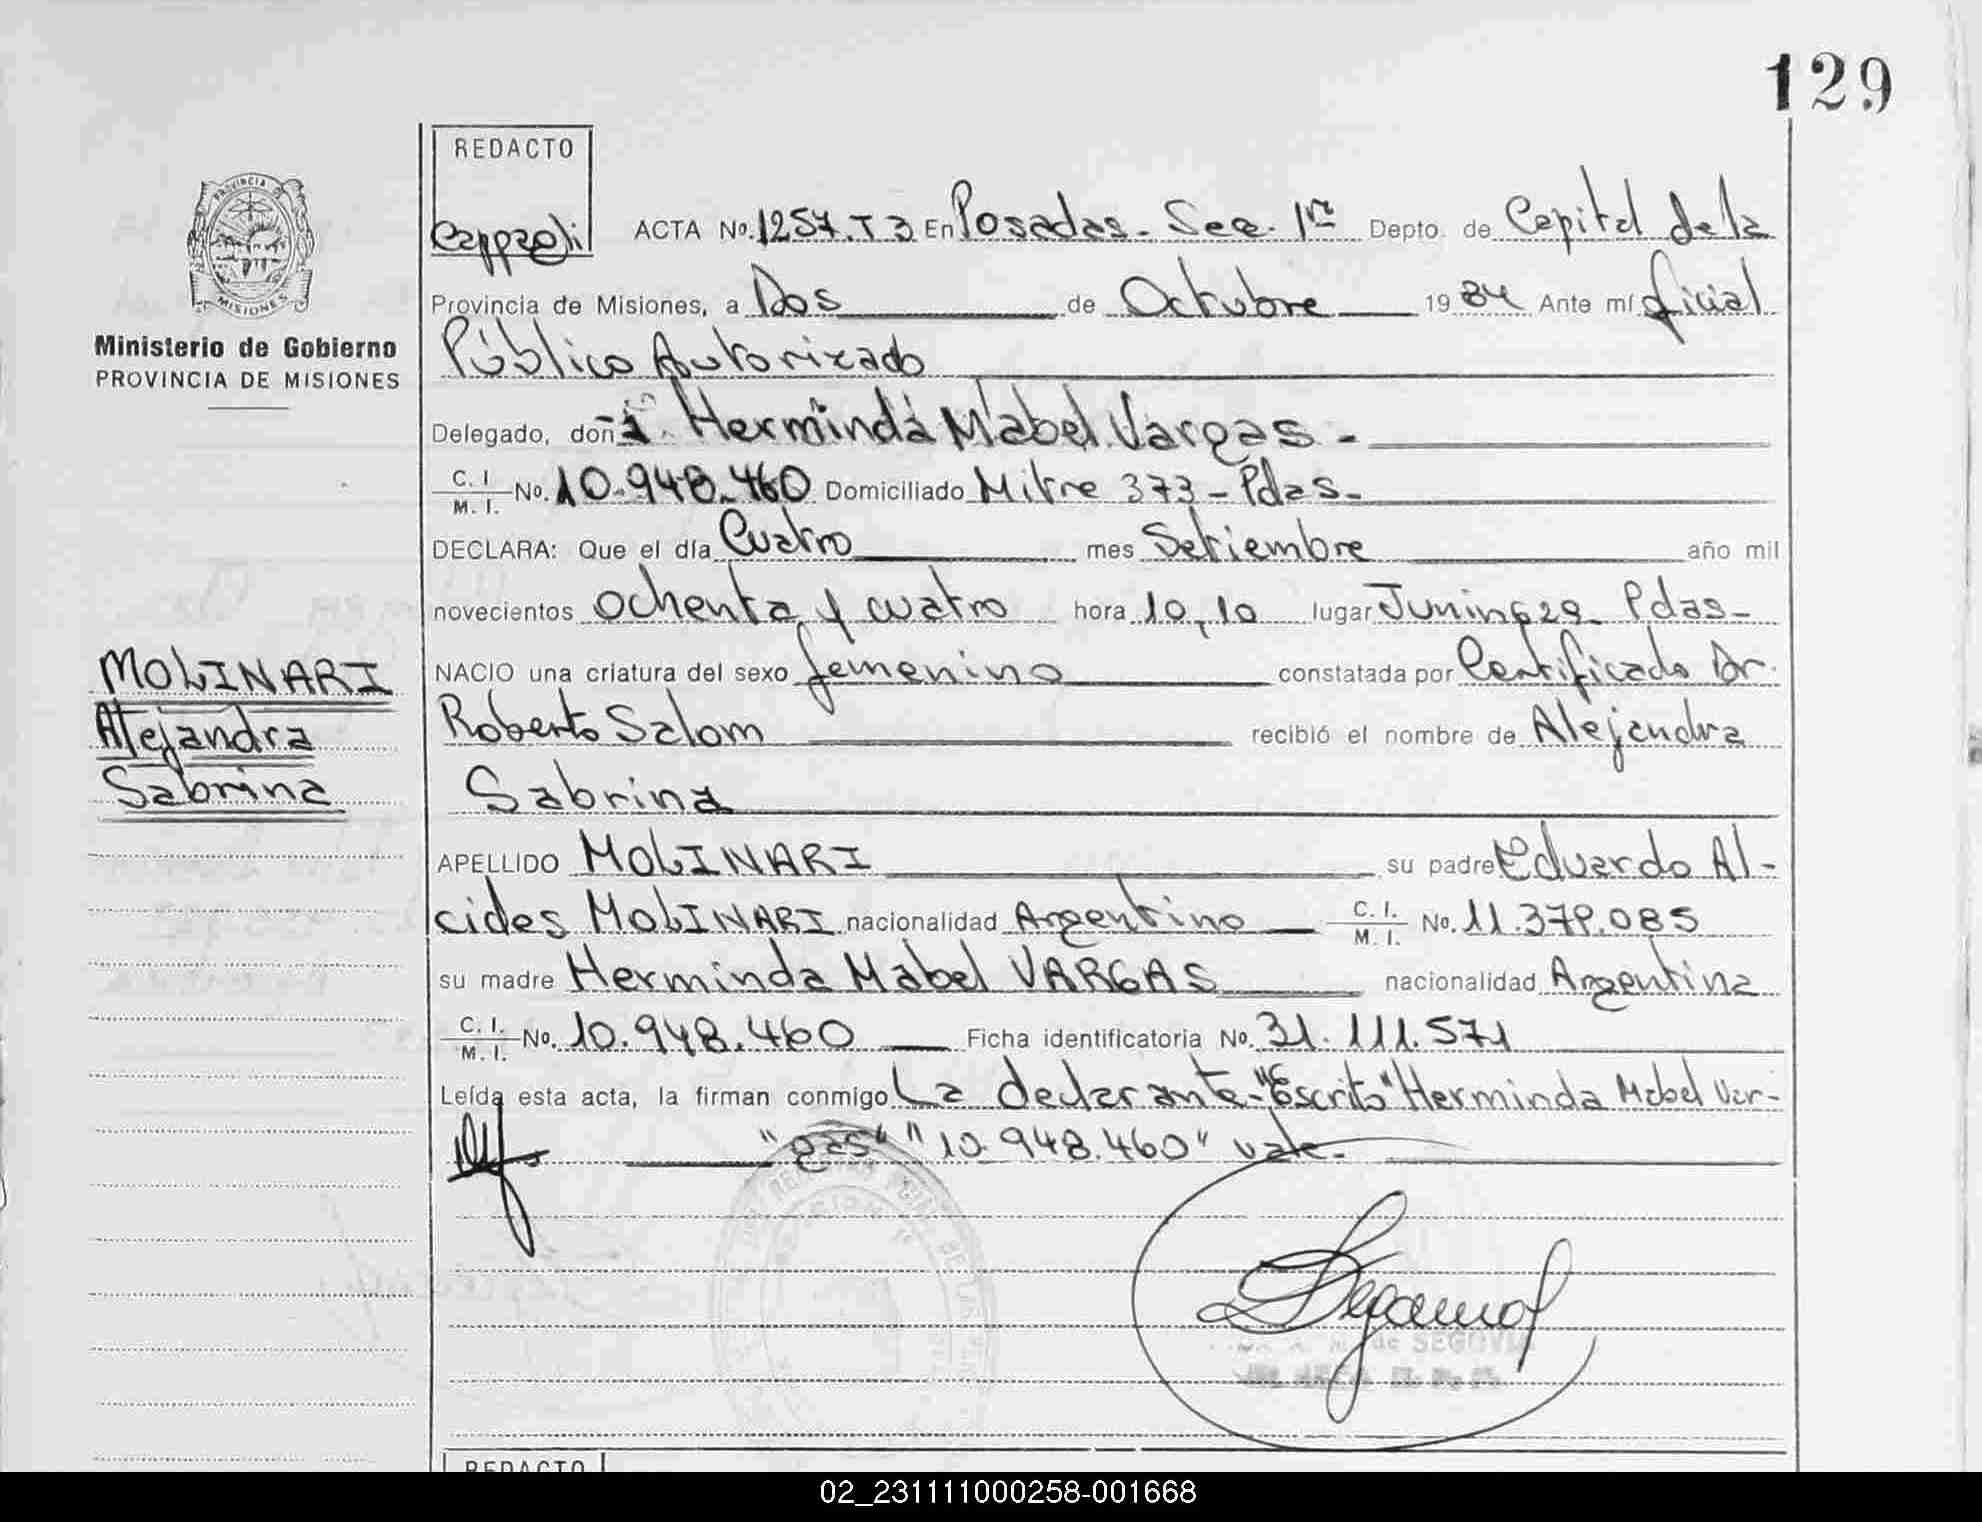 129
REDACTO
ACTA No. 1257. T 3 En Posadas. Sec. 1ra Depto. de Capital de la
PROVINCIA DE MISIONES
Provincia de Misiones, a Dos de Octubre 1984 Ante mí Oficial
Ministerio de Gobierno
PROVINCIA DE MISIONES
Público Autorizado
Delegado, doña Herminda Mabel Vargas -
C. I. M. I. No. 10.948.460 Domiciliado Mitre 373 - Pdas-
DECLARA: Que el día Cuatro mes Setiembre año mil
novecientos ochenta y cuatro hora 10,10 lugar Junin 629 Pdas-
NACIO una criatura del sexo femenino constatada por Certificado Dr.
MOLINARI
Alejandra
Sabrina
Roberto Salom recibió el nombre de Alejandra
Sabrina
APELLIDO MOLINARI su padre Eduardo Al-
cides MOLINARI nacionalidad Argentino C. I. M. I. No. 11.379.085
su madre Herminda Mabel VARGAS nacionalidad Argentina
C. I. M. I. No. 10.948.460 Ficha identificatoria No. 31.111.571
Leída esta acta, la firman conmigo La declarante-"Escrito" "Herminda Mabel Var-
"gas" "10.948.460" vale.
de SEGOVIA
REDACTO
02_231111000258-001668